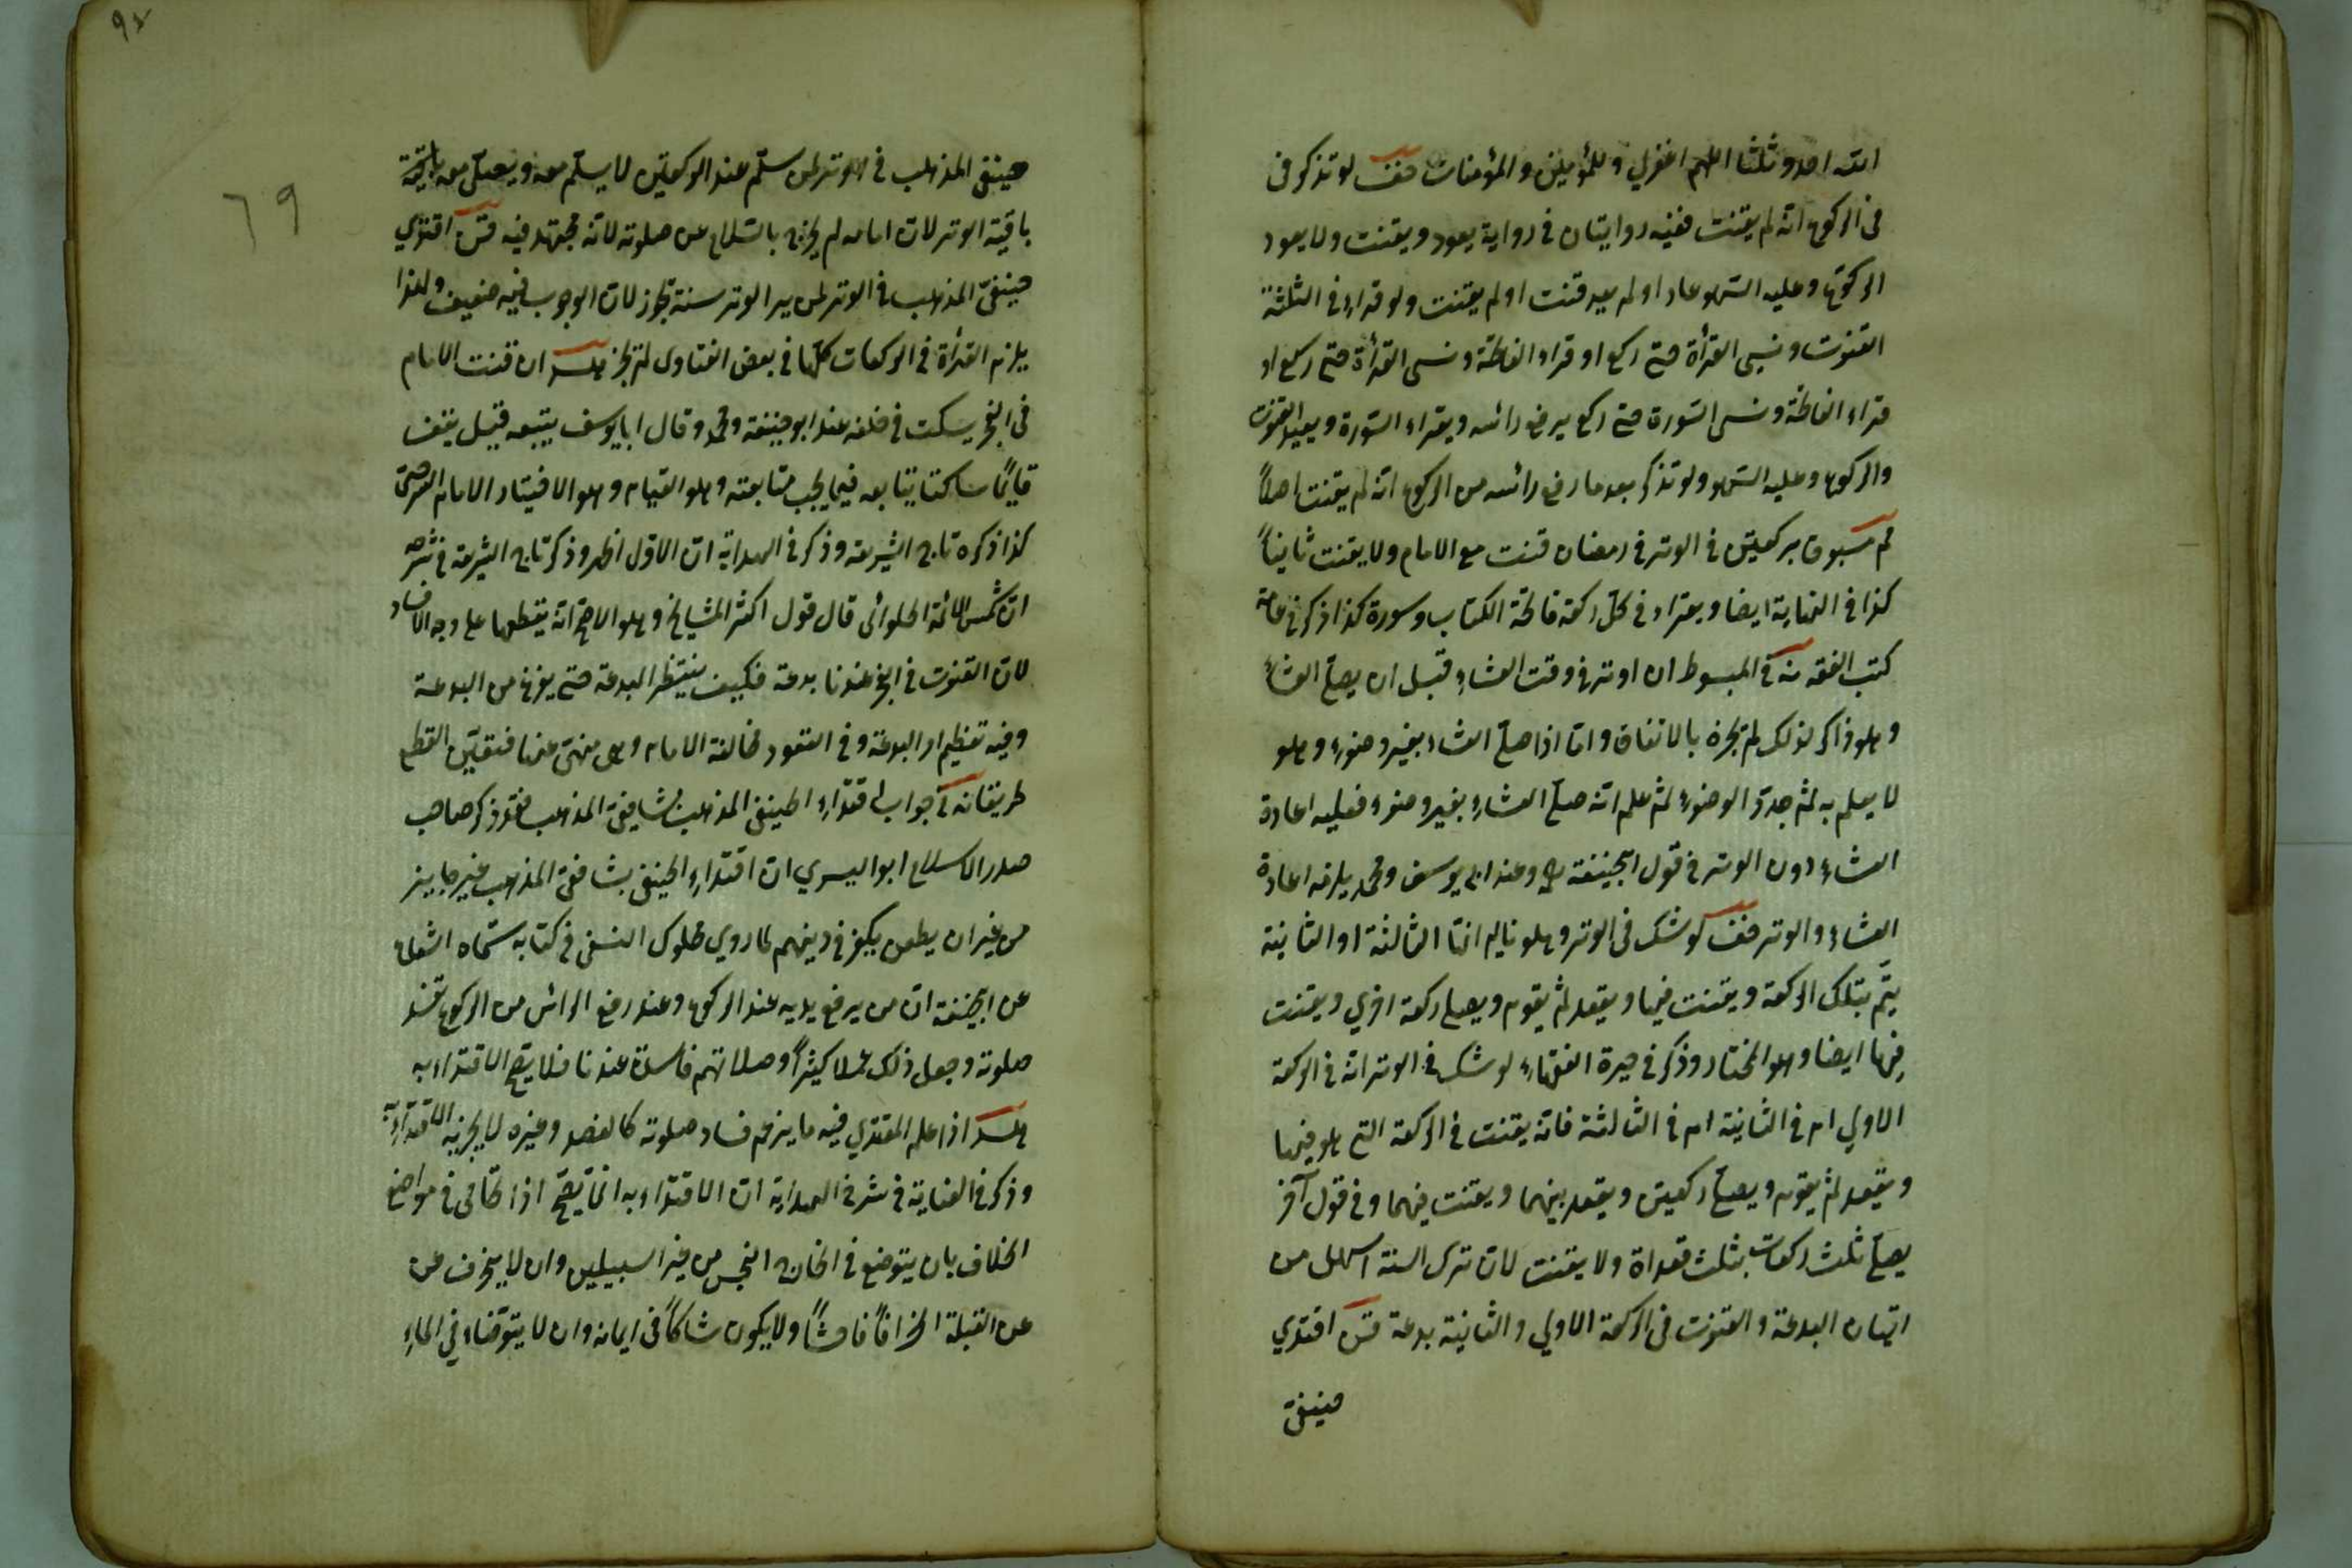 الله احد وثلثا اللهم اغفر لي وللمؤمنين والمؤمنات خف لو تذكر في
في الركوع انه لم يقنت ففيه روايتان في رواية يعود ويقنت ولا يعود
الركوع وعليه السهو عاد او لم يعد قنت او لم يقنت ولو قراء في الثلثة
القنوت ونسي القرأة حتى ركع او قراء الفاتحة ونسى القرأة حتى ركع او
قراء الفاتحة ونسى السورة حتى ركع يرفع رائسه ويقراء السورة ويعيد القنوت
والركوع وعليه السهو ولو تذكر بعد ما رفع رائسه من الركوع انه لم يقنت اصلاً
مسبوق بركعتين في الوتر في رمضان قنت مع الامام ولا يقنت ثانياً
كذا في النهاية ايضا ويقراء في كل ركعة فاتحة الكتاب وسورة كذا ذكر في عامة
كتب الفقه في المبسوط ان اوتر في وقت العشاء قبل ان يصلي العشاء
وهو ذاكر لذلك لم تجزه بالاتفاق واما اذا صلى العشاء بغير وضوء وهو
لا يعلم به ثم جدد الوضوء ثم علم انه صلى العشاء بغير وضوء فعليه اعادة
العشاء دون الوتر في قول ابحنيفة وعند ابي يوسف ومحمد يلزمه اعادة
العشاء والوتر خف لو شك في الوتر وهو قايم انها الثالثة او الثانية
يتم بتلك الركعة ويقنت فيها ويقعد ثم يقوم ويصلي ركعة اخري ويقنت
فيها ايضا وهو المختار وذكر في حيرة الفقهاء لو شك في الوتر انه في الركعة
الاولي ام في الثانية ام في الثالثة فانه يقنت في الركعة التي هو فيها
ويقعد ثم يقوم ويصلي ركعتين ويقعد بينهما ويقنت فيهما وفي قول آخر
يصلي ثلث ركعات بثلث قعداة ولا يقنت لان ترك السنة اسهل من
اتيان البدعة والقنوت في الركعة الاولي والثانية بدعة اقتدي
حنيفي
حنيفي المذهب في الوتر بمن سلم عند الركعتين لا يسلم معه ويصلي معه بقية
باقية الوتر لان امامه لم يخرج بالسلام عن صلوته لانه مجتهد فيه اقتدي
حنيفي المذهب في الوتر بمن يرا الوتر سنة تجوز لان الوجوب فيه ضعيف ولهذا
يلزم القرأة في الركعات كلها في بعض الفتاوى لم تجز ان قنت الامام
في الفجر يسكت في خلفه عند ابو حنيفة ومحمد وقال ابا يوسف يتبعه قيل يقف
قايمًا ساكتا يتابعه فيما يجب متابعته وهو القيام وهو الاختيار الامام السرخسي
كذا ذكره تاج الشريعة وذكر في الهداية ان الاول اظهر وذكر تاج الشريعة في شرحه
ان شمس الائمة الحلوائي قال قول اكثر المشايخ وهو الاصح انه يقطعها على وجه الافساد
لان القنوت في الفجر عندنا بدعة فكيف ينتظر البدعة حتى يفرغ من البدعة
وفيه تعظيم امر البدعة وفي القعود مخالفة الامام وهي منهي عنها فتعين القطع
طريقا في جواب اقتداء الحنيفي المذهب بشافعي المذهب فقد ذكر صاحب
صدر الاسلام ابو اليسري ان اقتداء الحنيفي بشافعي المذهب غير جايز
من غير ان يطعن بكفر في دينهم لما روي مكحول النسفي في كتابه سماه الشعاع
عن ابحنيفة ان من يرفع يديه عند الركوع وعند رفع الرائس من الركوع تفسد
صلوته وجعل ذلك عملا كثيراً وصلاتهم فاسدة عندنا فلا يصح الاقتداء به
اذا علم المقتدي فيه ما يزعم فساد صلوته كالفصد وغيره لا يجزيه الاقتداء به
وذكر في العناية في شرح الهداية ان الاقتداء به انما يصح اذا تحامى في مواضع
الخلاف بان يتوضع في الخارج النجس من غير السبيلين وان لا ينحرف عن
عن القبلة انحرافاً فاحشاً ولا يكون شاكاً في ايمانه وان لا يتوضاء في الماء
٦٩